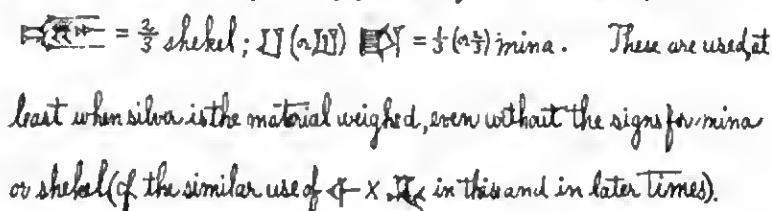 = 2/3 shekel; (or ) = 1/3 (or 2/3) mina. These are used, at
least when silver is the material weighed, even without the signs for mina
or shekel (cf the similar use of x in this and in later times).